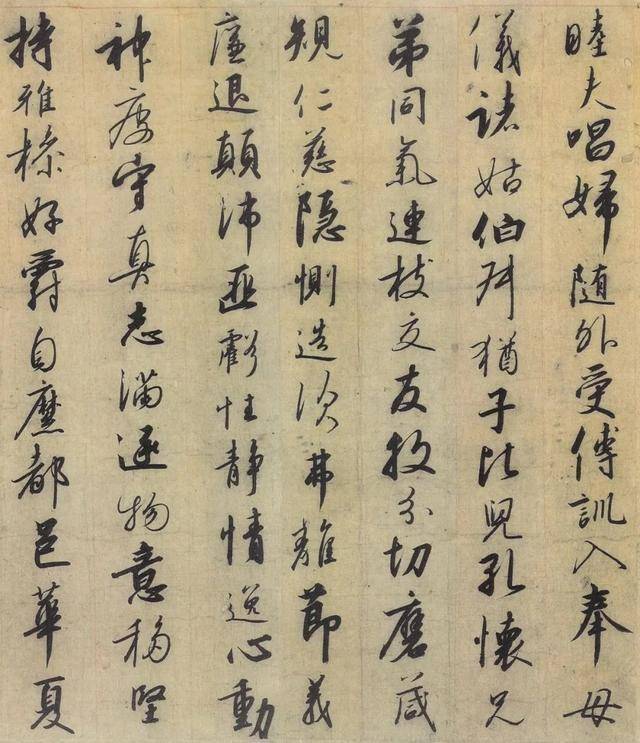 睦夫唱婦随外受傅訓入奉母
儀諸姑伯叔猶子比兒孔懷兄
弟同氣連枝交友投分切磨箴
規仁慈隠惻造次弗離節義
廉退顛沛匪虧性静情逸心動
神疲守真志滿逐物意移堅
持雅操好爵自縻都邑華夏